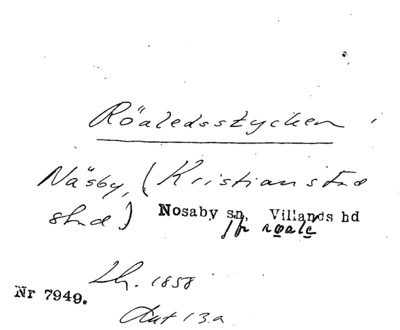 Röaledsstycken
Näsby, (Kristianstad
stad)
Nosaby sn, Villands hd
jfr røale
Lh. 1858
Nr 7949.
Akt 13a